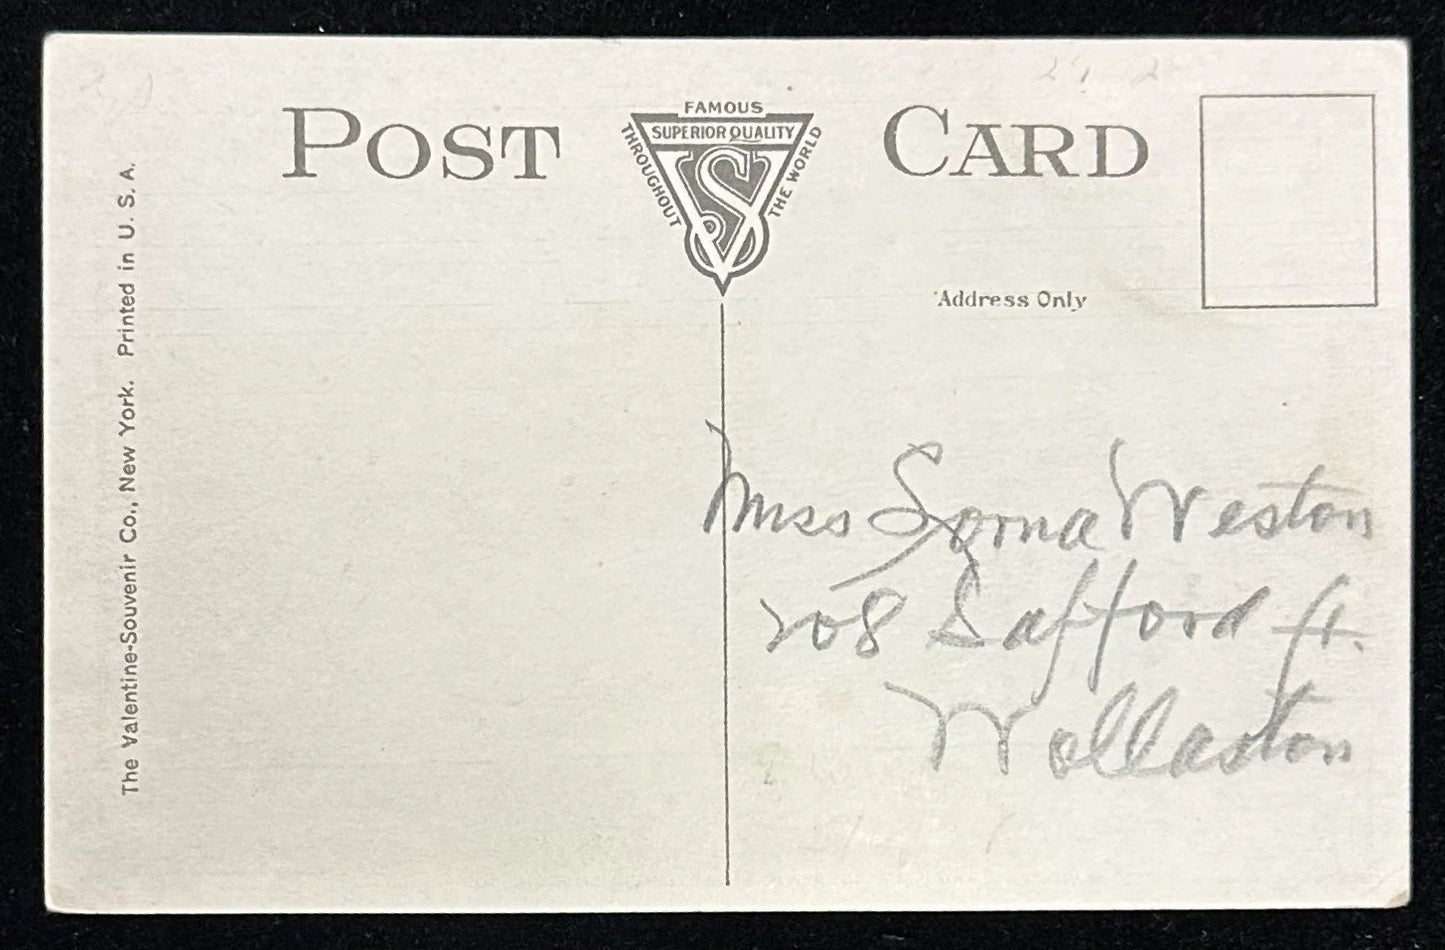 POST CARD
FAMOUS
SUPERIOR QUALITY
THROUGHOUT
THE WORLD
VS
The Valentine-Souvenir Co., New York. Printed in U. S. A.
Address Only
Miss Weston
208 Safford St.
Wollaston